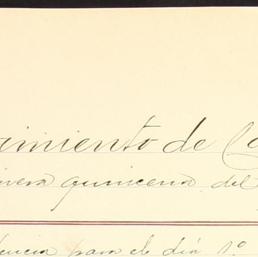 imiento de Ca
imera quincena del
dencia para el día 1º